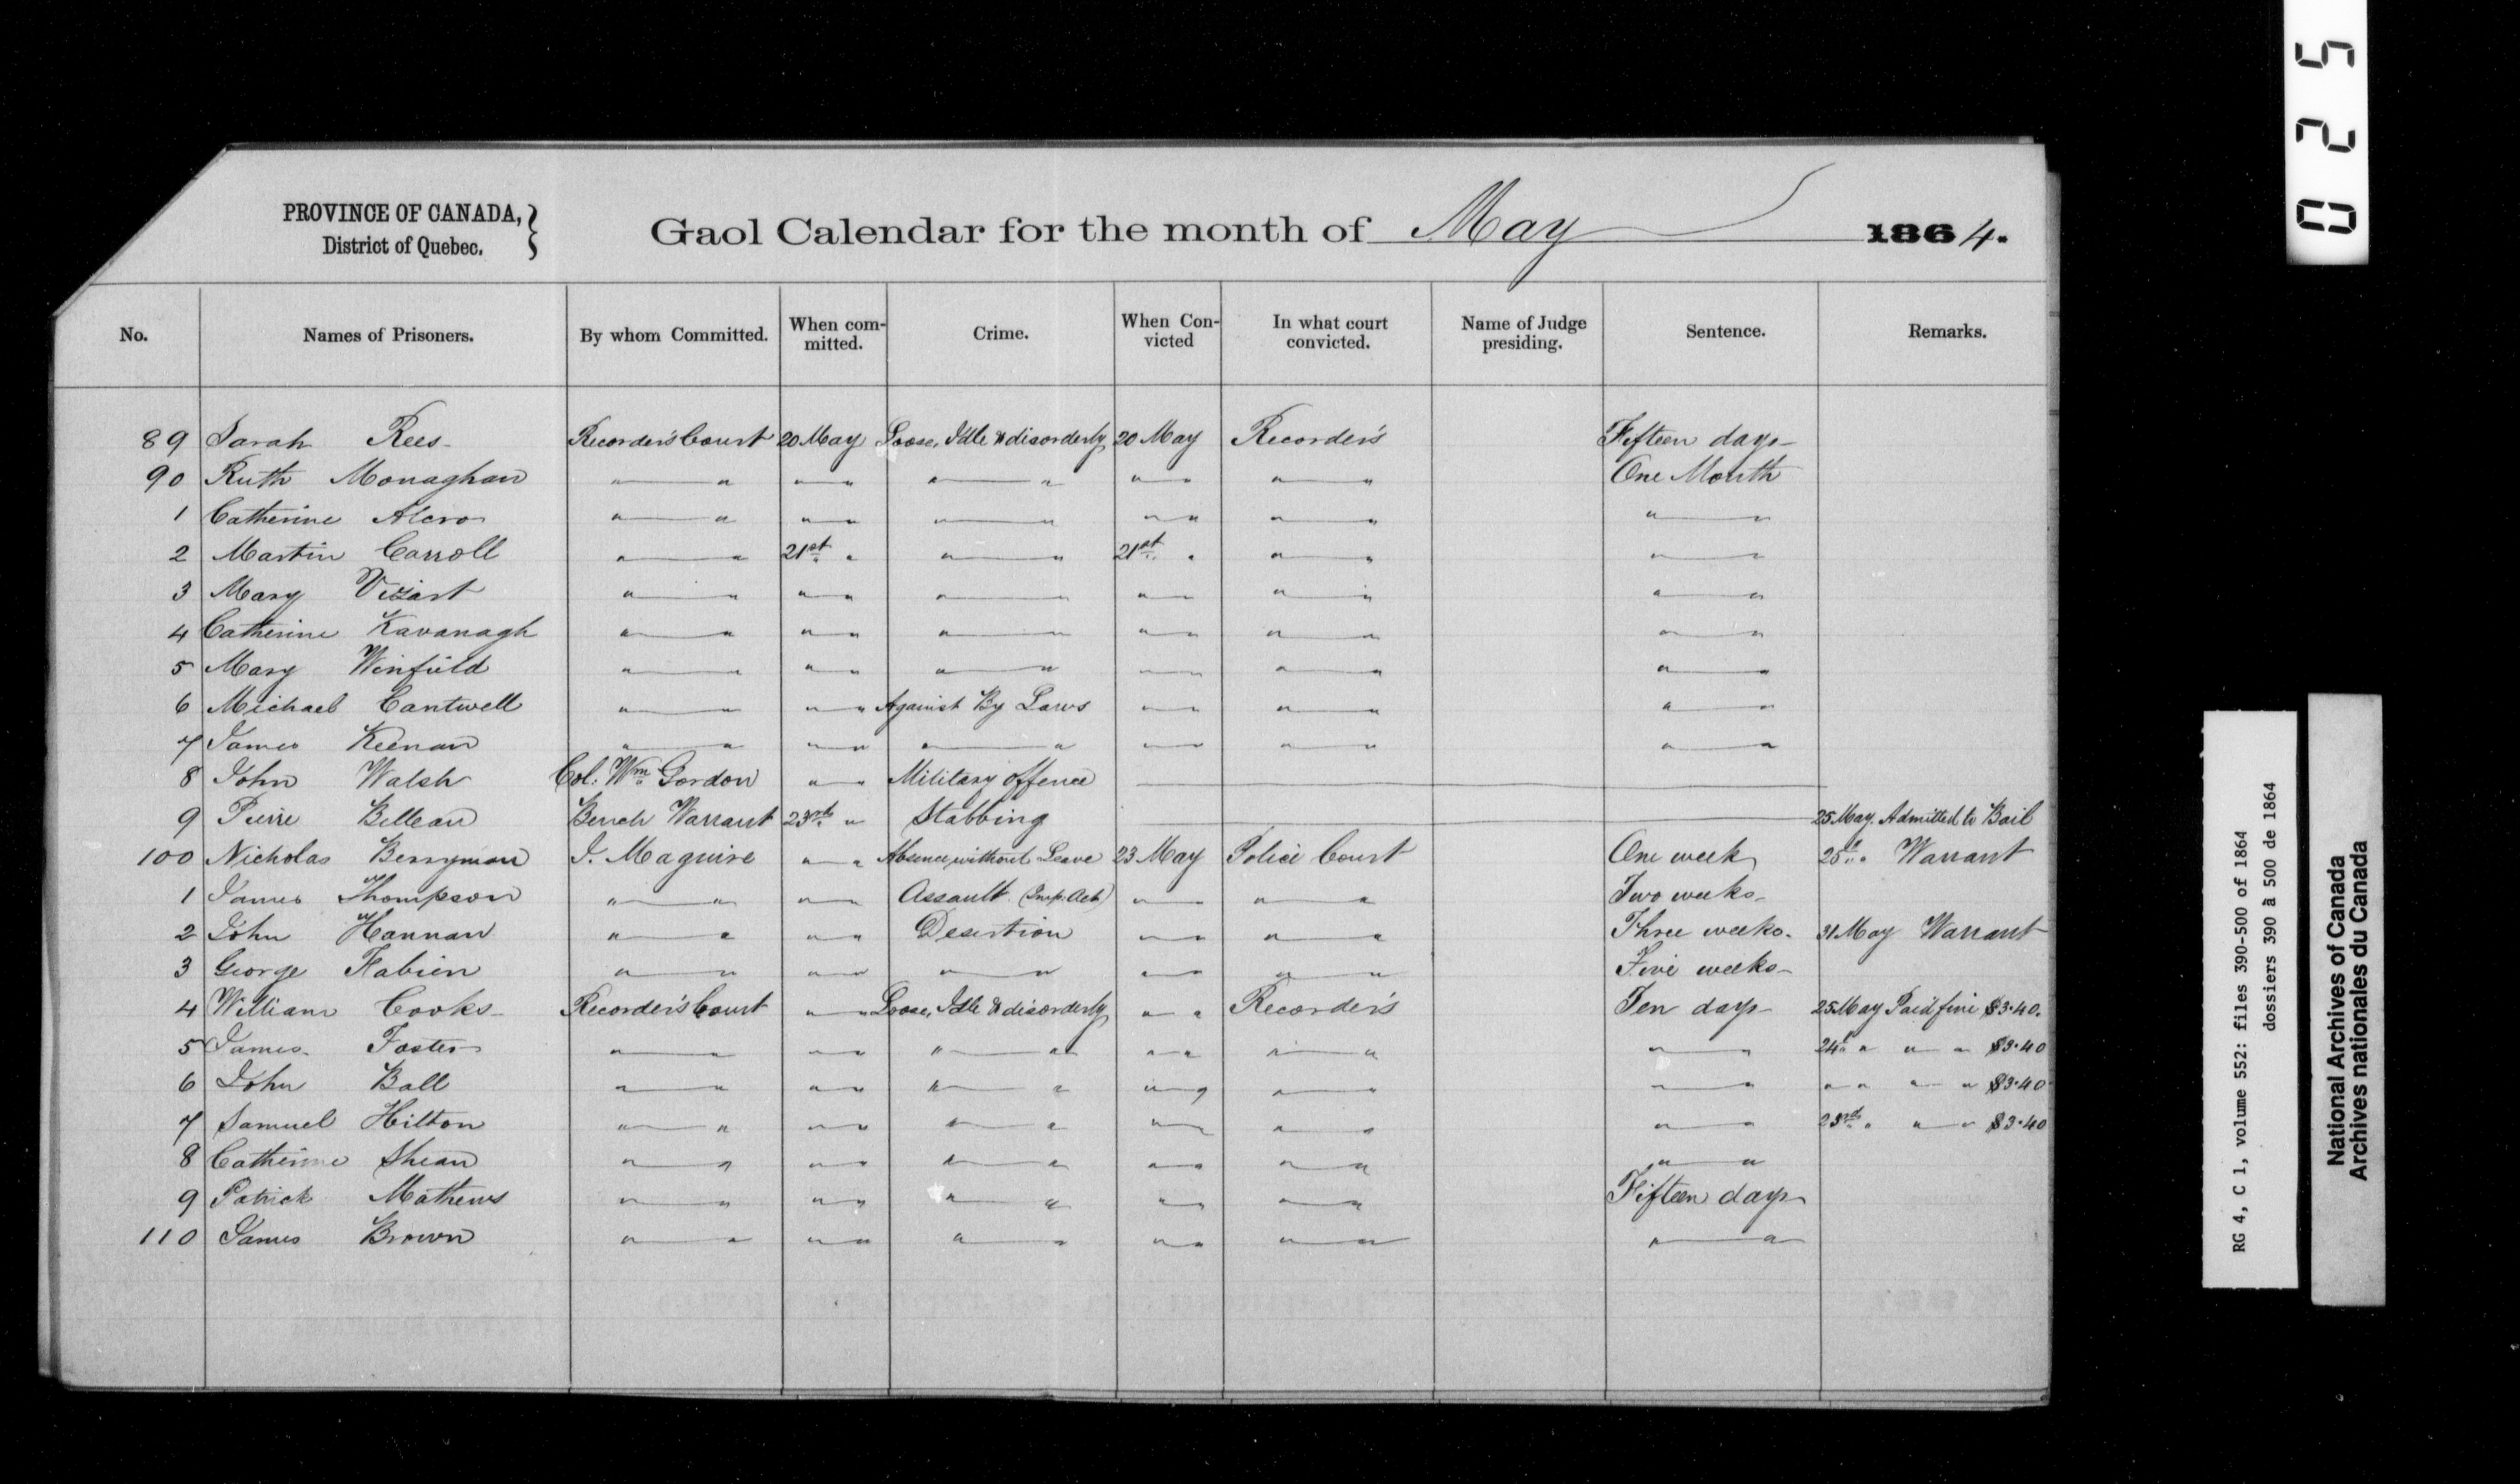 PROVINCE OF CANADA,
District of Quebec.
Gaol Calendar for the month of May 1864.
No. Names of Prisoners. By whom Committed. When committed. Crime. When Convicted In what court convicted. Name of Judge presiding. Sentence. Remarks.
89 Sarah Rees Recorder's Court 20 May Loose, Idle & disorderly 20 May Recorder's Fifteen days
90 Ruth Monaghan " " " " " " " " " " One Month
1 Catherine " " " " " " " " " " " "
2 Martin Carroll " " 21st " " " 21st " " " " "
3 Mary Vizart " " " " " " " " " " " "
4 Catherine Kavanagh " " " " " " " " " " " "
5 Mary Winfield " " " " " " " " " " " "
6 Michael Cantwell " " " " Against By Laws " " " " " "
7 James Keenan " " " " " " " " " " " "
8 John Walsh Col. Wm Gordon " " Military offence
9 Pierre Belleau Bench Warrant 23rd " Stabbing 25 May. Admitted to Bail
100 Nicholas Berryman J. Maguire " " Absence without Leave 23 May Police Court One week 25 " Warrant
1 James Thompson " " " " Assault (Imp. Act) " " " " Two weeks
2 John Hannan " " " " Desertion " " " " Three weeks. 31 May Warrant
3 George Fabien " " " " " " " " " " Five weeks
4 William Cooks Recorder's Court " " Loose, Idle & disorderly " " Recorder's Ten days 25 May Paid fine $3.40.
5 James Foster " " " " " " " " " " " " 24 " " " $3.40
6 John Ball " " " " " " " " " " " " " " " " $3.40
7 Samuel Hilton " " " " " " " " " " " " 23rd " " " $3.40
8 Catherine Shean " " " " " " " " " " " "
9 Patrick Mathews " " " " " " " " " " Fifteen days
110 James Brown " " " " " " " " " " " "
025
RG 4, C 1, volume 552: files 390-500 of 1864
dossiers 390 à 500 de 1864
National Archives of Canada
Archives nationales du Canada